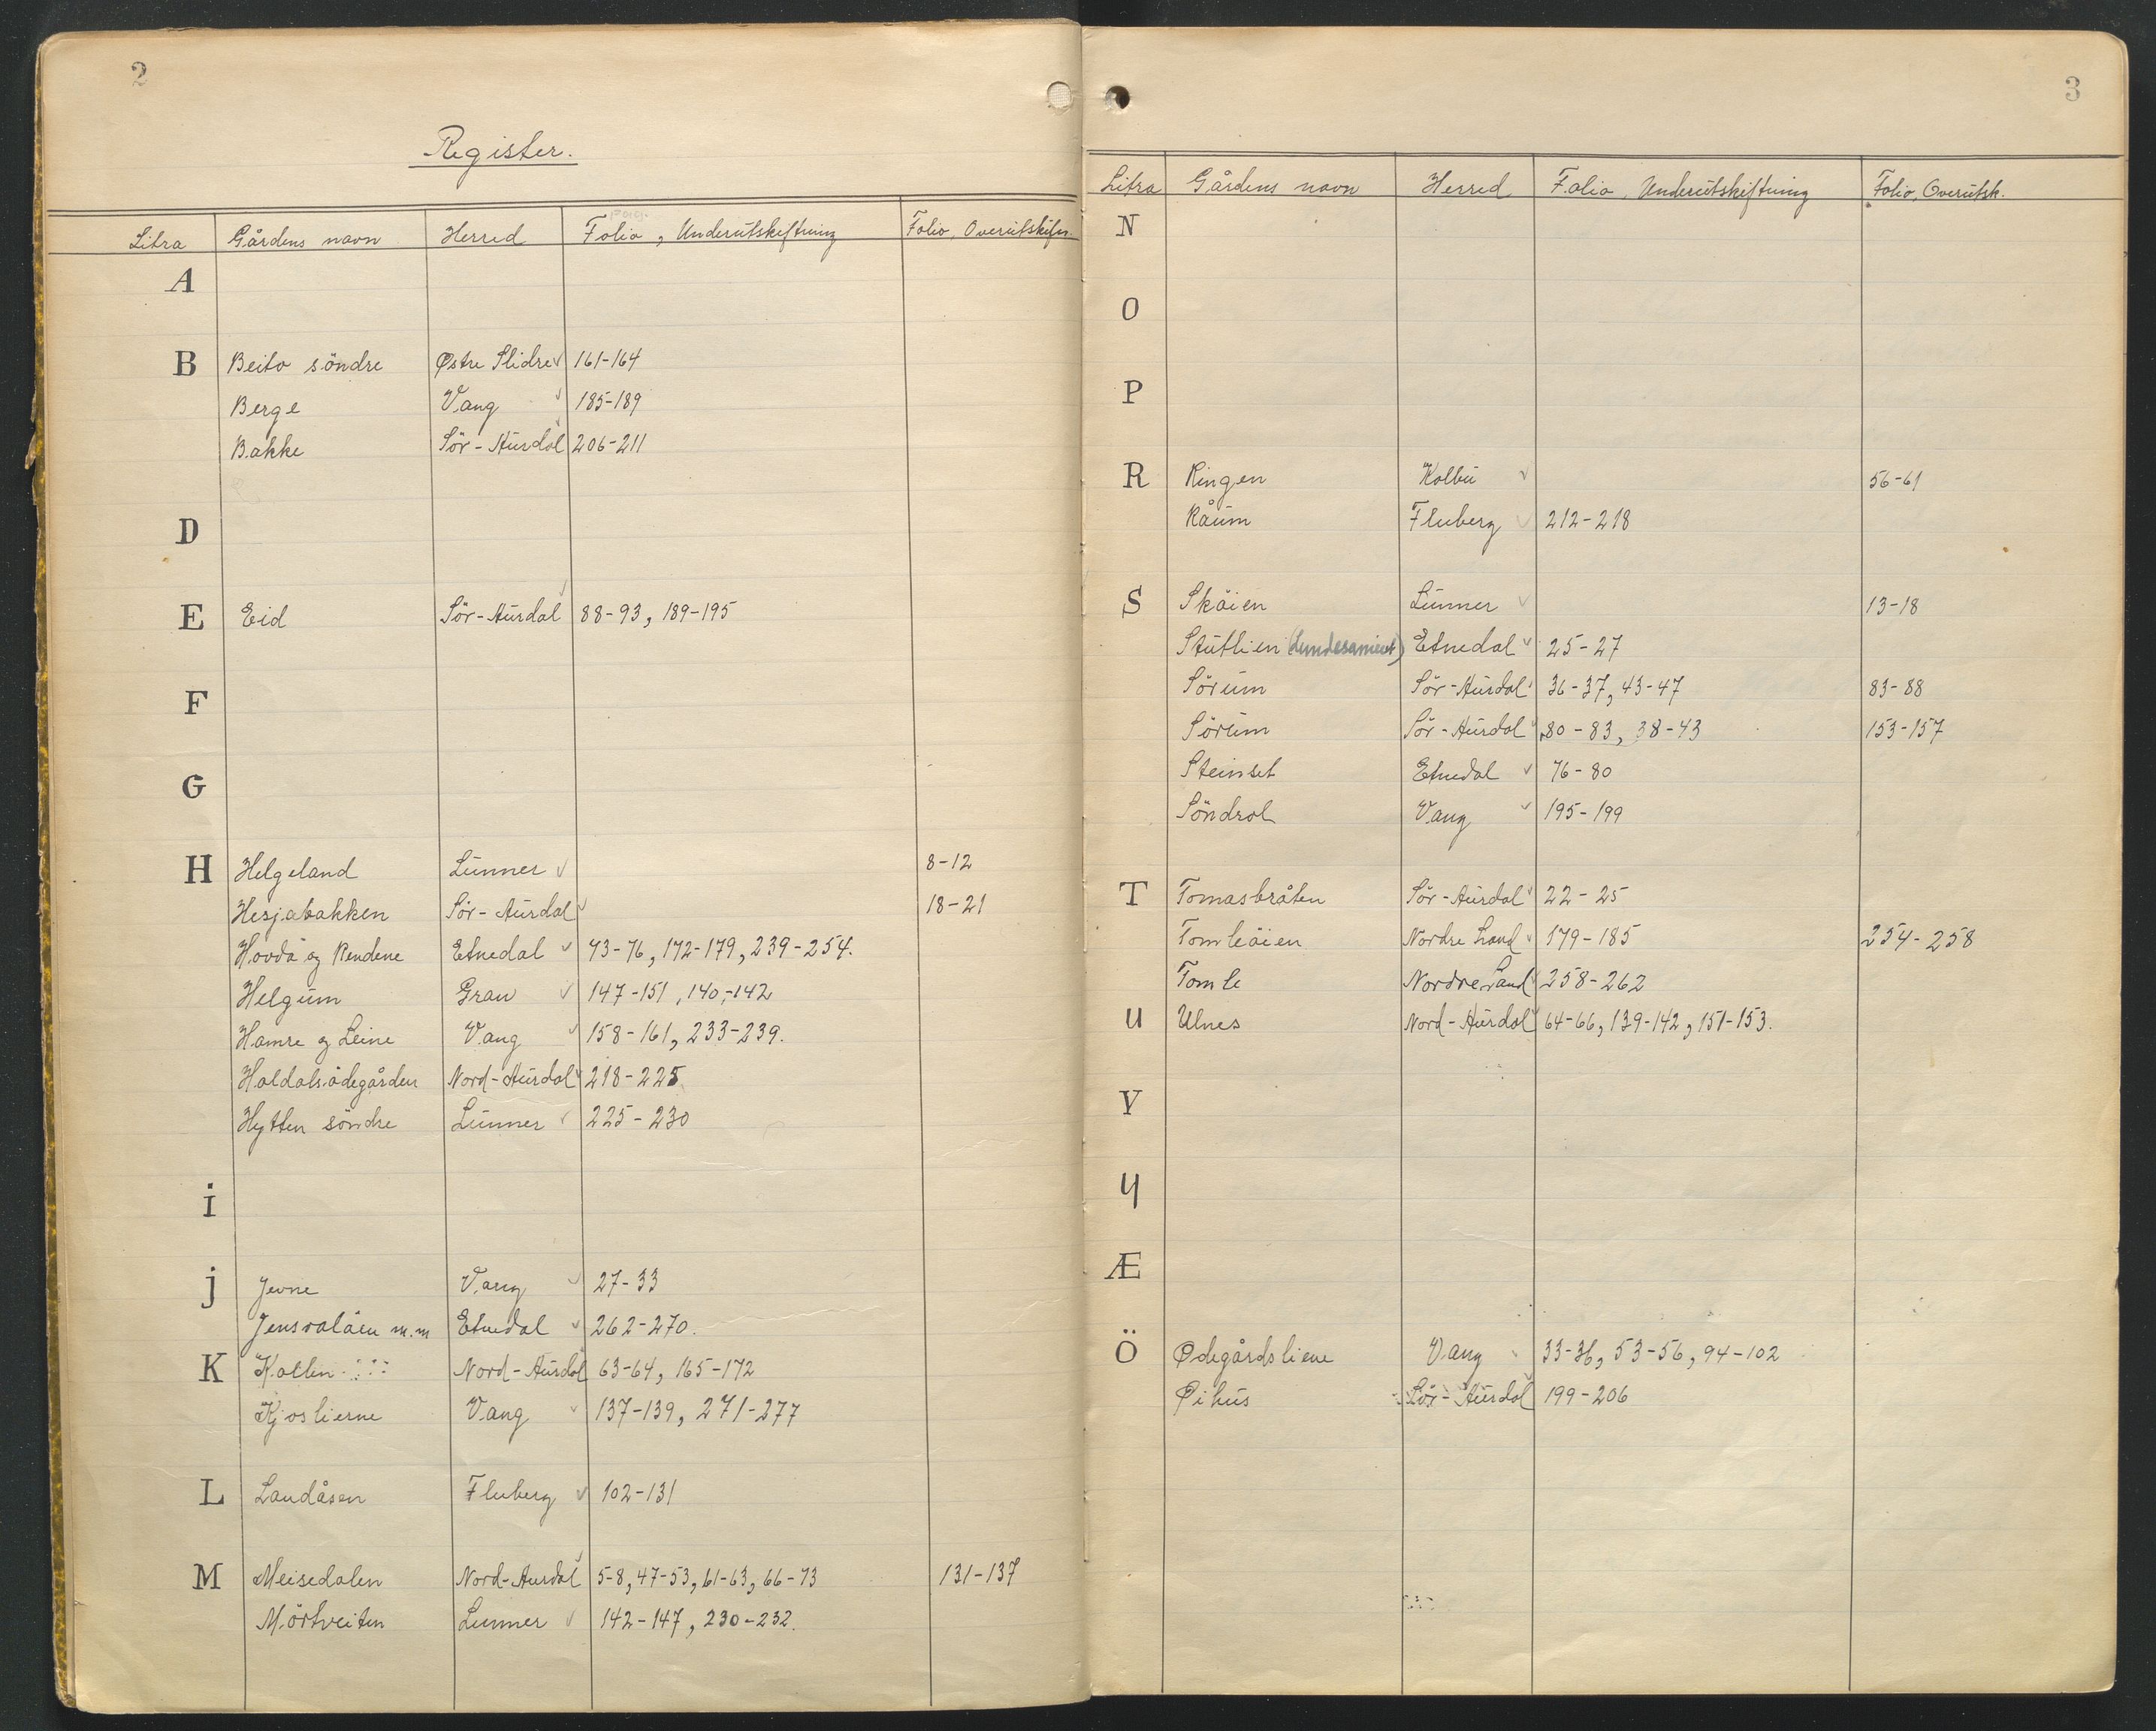 2
Register.
Litra Gårdens navn Herred Folio, Underutskiftning Folio, Overutskifn.
A
B Beito söndre Østre Slidre 161-164
Berge Vang 185-189
Bakke Sör-Aurdal 206-211
D
E Eid Sör-Aurdal 88-93, 189-195
F
G
H Helgeland Lunner 8-12
Hesjabakken Sör-Aurdal 18-21
Hovda og Rendene Etnedal 73-76, 172-179, 239-254.
Helgum Gran 147-151, 140-142
Hamre og Leine Vang 158-161, 233-239.
Haldalsödegården Nord-Aurdal 218-225
Hytten söndre Lunner 225-230
i
j Jevne Vang 27-33
Jensvalåen m.m Etnedal 262-270.
K Kallin Nord-Aurdal 63-64, 165-172
Kjoslierne Vang 137-139, 271-277
L Landåsen Fluberg 102-131
M Meisedalen Nord-Aurdal 5-8, 47-53, 61-63, 66-73 131-137
Mörtveiten Lunner 142-147, 230-232.
3
Litra Gårdens navn Herred Folio, Underutskiftning Folio, Overutsk.
N
O
P
R Ringen Kolbu 56-61
Råum Fluberg 212-218
S Sköien Lunner 13-18
Stutlien Etnedal 25-27
Sörum Sör-Aurdal 36-37, 43-47 83-88
Sörum Sör-Aurdal 80-83, 38-43 153-157
Steinset Etnedal 76-80
Söndrol Vang 195-199
T Tomasbråten Sör-Aurdal 22-25
Tomleöien Nordre Land 179-185 254-258
Tomle Nordre Land 258-262
U Ulnes Nord-Aurdal 64-66, 139-142, 151-153.
V
Y
Æ
Ö Ødegårdsliene Vang 33-36, 53-56, 94-102
Øihus Sör-Aurdal 199-206